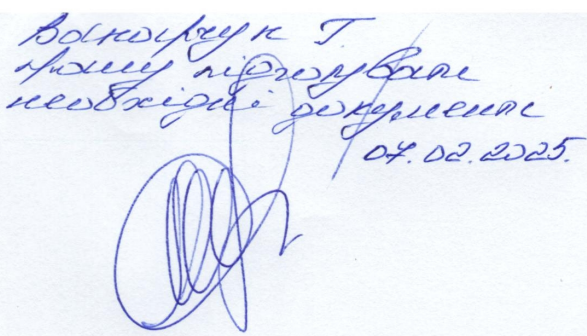 Вакарчук Т
Прошу підготувати
необхідні документи
07.02.2025.